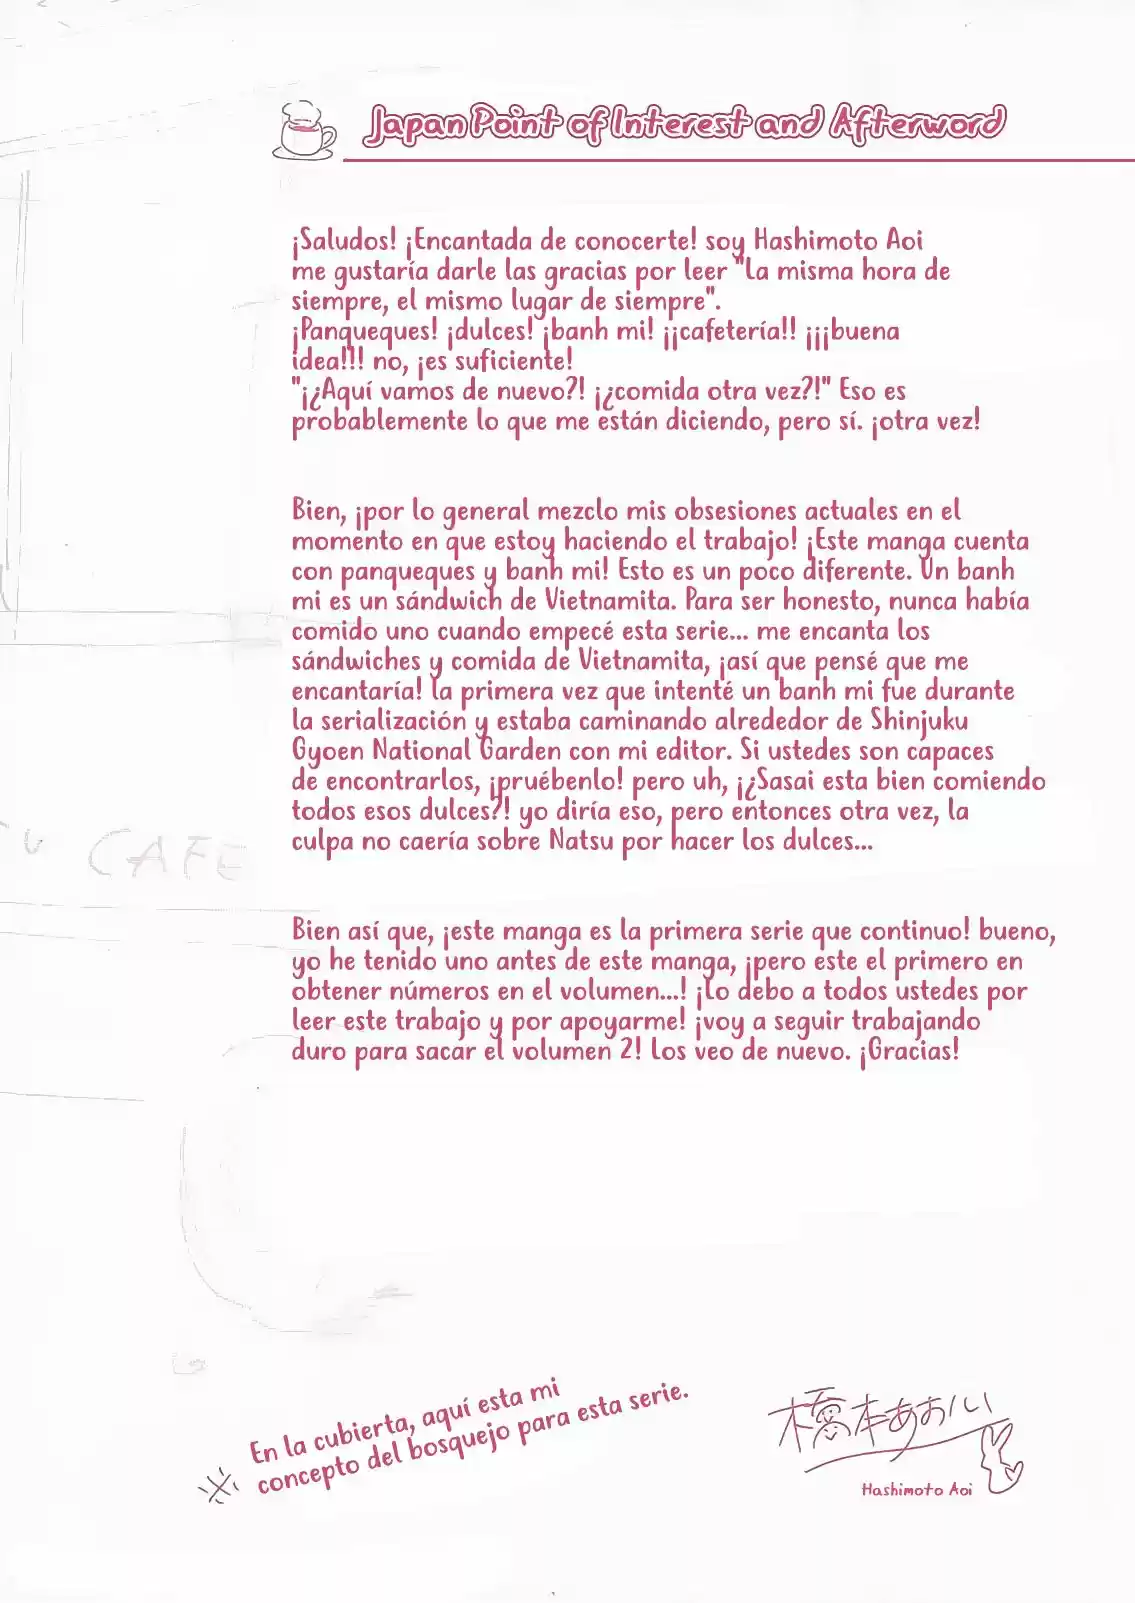 Japan Point of Interest and Afterword
¡Saludos! ¡Encantada de conocerte! soy Hashimoto Aoi
me gustaría darle las gracias por leer "La misma hora de
siempre, el mismo lugar de siempre".
¡Panqueques! ¡dulces! ¡banh mi! ¡¡cafetería!! ¡¡¡buena
idea!!! no, ¡es suficiente!
"¡¿Aquí vamos de nuevo?! ¡¿comida otra vez?!" Eso es
probablemente lo que me están diciendo, pero sí. ¡otra vez!
Bien, ¡por lo general mezclo mis obsesiones actuales en el
momento en que estoy haciendo el trabajo! ¡Este manga cuenta
con panqueques y banh mi! Esto es un poco diferente. Un banh
mi es un sándwich de Vietnamita. Para ser honesto, nunca había
comido uno cuando empecé esta serie... me encanta los
sándwiches y comida de Vietnamita, ¡así que pensé que me
encantaría! la primera vez que intenté un banh mi fue durante
la serialización y estaba caminando alrededor de Shinjuku
Gyoen National Garden con mi editor. Si ustedes son capaces
de encontrarlos, ¡pruébenlo! pero uh, ¡¿Sasai esta bien comiendo
todos esos dulces?! yo diría eso, pero entonces otra vez, la
culpa no caería sobre Natsu por hacer los dulces...
CAFE
Bien así que, ¡este manga es la primera serie que continuo! bueno,
yo he tenido uno antes de este manga, ¡pero este el primero en
obtener números en el volumen...! ¡lo debo a todos ustedes por
leer este trabajo y por apoyarme! ¡voy a seguir trabajando
duro para sacar el volumen 2! Los veo de nuevo. ¡Gracias!
En la cubierta, aquí esta mi
※ concepto del bosquejo para esta serie.
橋本あおい
Hashimoto Aoi